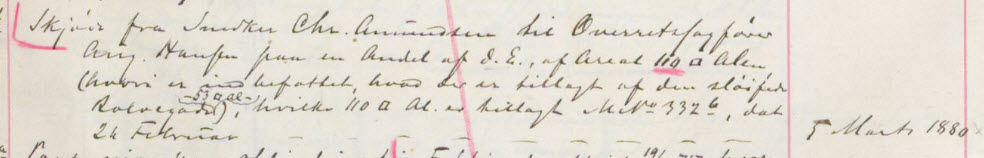 Skjøde fra Snedker Chr. Amundsen til Overretssagfører
Aug. Hansen paa en Andel af d. E., af Areal 110 □ Alen
(hvori er indbefattet, hvad der er tillagt af den sløifede
-53 □ Al-
Rolvsgade), hvilke 110 □ Al. er tillagt Mt No 332b, dat
24 Februar
5 Marts 1880